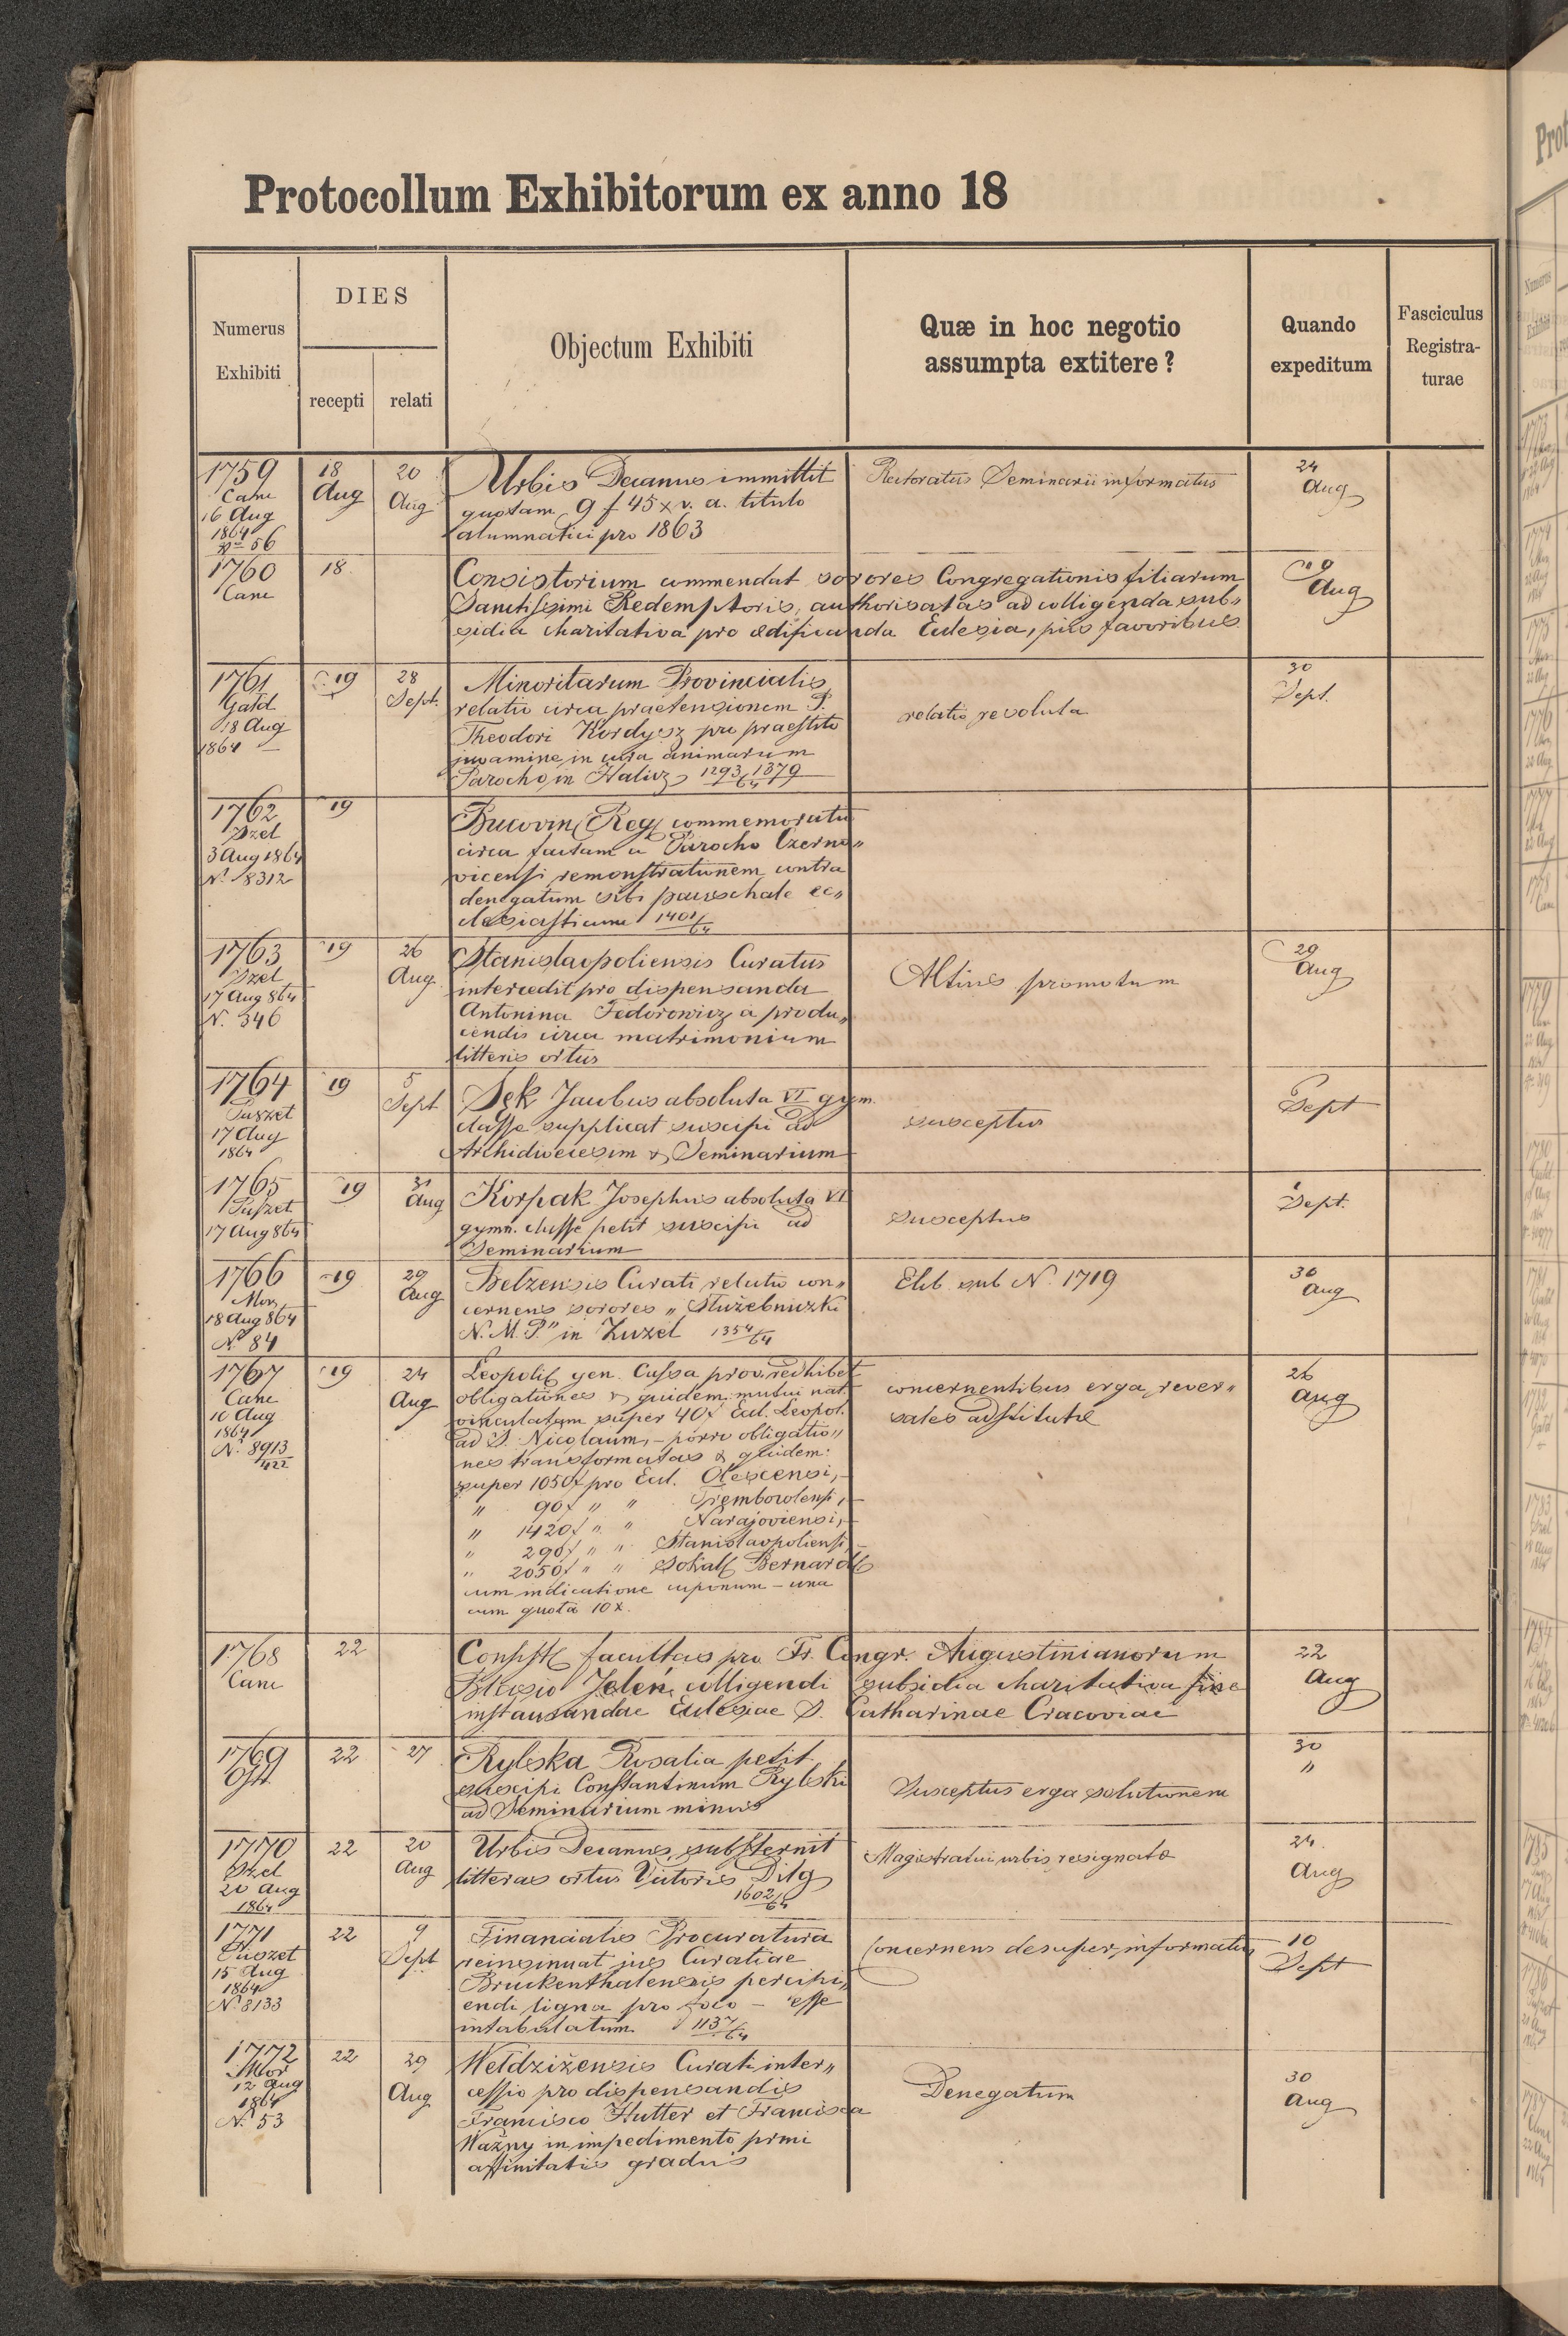 Protocollum Exhibitorum ex anno 18
Numerus
Exhibiti
DIES
recepti
relati
Objectum Exhibiti
Quæ in hoc negotio
assumpta extitere?
Quando
expeditum
Fasciculus
Registra-
turae
1759
Canc
16 Aug
1864
Nro 56
18
Aug
20
Aug
Urbis Decanus immittit
quotam 9 f 45 x v. a. titulo
alumnatici pro 1863
Rectoratus Seminarii informatus
24
Aug
1760
Canc
18
Consistorium commendat sorores Congregationis filiarum
Sanctissimi Redemptoris, authorisatas ad colligenda sub„
sidia charitativa pro ædificanda Eclesia, piis favoribus
Aug
1761
Gald
18 Aug
1864
19
28
Sept.
Minoritarum Provincialis
relatio circa praetensionem P.
Theodori Kordysz pro praestito
juvamine in cura animarum
Parocho in Halicz 1293/1379/64
relatio revoluta
30
Sept.
1762
Szel
3 Aug 1864
N. 8312
19
Bucovin Reg commemoratio
circa factam a Parocho Czerno„
vicensi remonstrationem contra
denegatum sibi pauschale ec„
clesiasticum 1401/64
1763
Szel
17 Aug 864
N. 346
19
26
Aug
Stanislaopoliensis Curatus
intercedit pro dispensanda
Antonina Fedorowicz a produ„
cendis circa matrimonium
litteris ortus
Altius promotum
29
Aug
1764
Puszet
17 Aug
1864
19
5
Sept
Sęk Jacobus absoluta VI gym.
classe supplicat suscipi ad
Archidioecesim & Seminarium
susceptus
Sept
1765
Puszet
17 Aug 864
19
31
Aug
Korpak Josephus absoluta VI
gymn. classe petit suscipi ad
Seminarium
susceptus
1
Sept.
1766
Mor
18 Aug 864
N. 84
19
29
Aug
Belzensis Curati relatio con„
cernens sorores „Służebniczki
N. M. P." in Żużel 1354/64
Elib sub N. 1719
30
Aug
1767
Canc
10 Aug
1864
N. 8913/422
19
24
Aug
Leopolis gen. Cassa prov. redhibet
obligationes & quidem: mutui nat.
vinculatam super 40 f Ecl. Leopol.
ad S. Nicolaum, – porro obligatio„
nes transformatas & quidem:
super 1050 f pro Ecl. Olescensi, –
„ 90 f „ „ Trembowlensi, –
„ 1420 f „ „ Narajoviensi, –
„ 290 f „ „ Stanislaopoliensi, –
„ 2050 f „ „ Sokal Bernard
cum indicatione cuponum – una
cum quota 10 x.
concernentibus erga rever„
sales adstitutæ
26
Aug
1768
Canc
22
Consist facultas pro Fr. Congr. Augustinianorum
Blasio Jeleń colligendi subsidia charitativa fine
instaurandae Eclesiae S. Catharinae Cracoviae
22
Aug
1769
Ost.
22
27
Rylska Rosalia petit
suscipi Constantinum Rylski
ad Seminarium minus
Susceptus erga solutionem
30
„
1770
Szel
20 Aug
1864
22
20
Aug
Urbis Decanus substernit
litteras ortus Victoris Dilg
1602/64
Magistratui urbis resignatæ
24
Aug
1771
Puszet
15 Aug
1864
N. 3133
22
9
Sept
Financialis Procuratura
reinsinuat jus Curatiae
Bruckenthalensis percipi„
endi ligna pro foco – esse
intabulatum 1137/64
Concernens desuper informatus
10
Sept
1772
Mor
12 Aug
1864
N. 53
22
29
Aug
Wełdziżensis Curati inter„
cessio pro dispensandis
Francisco Hutter et Francisca
Ważny in impedimento primi
affinitatis gradus
Denegatum
30
Aug